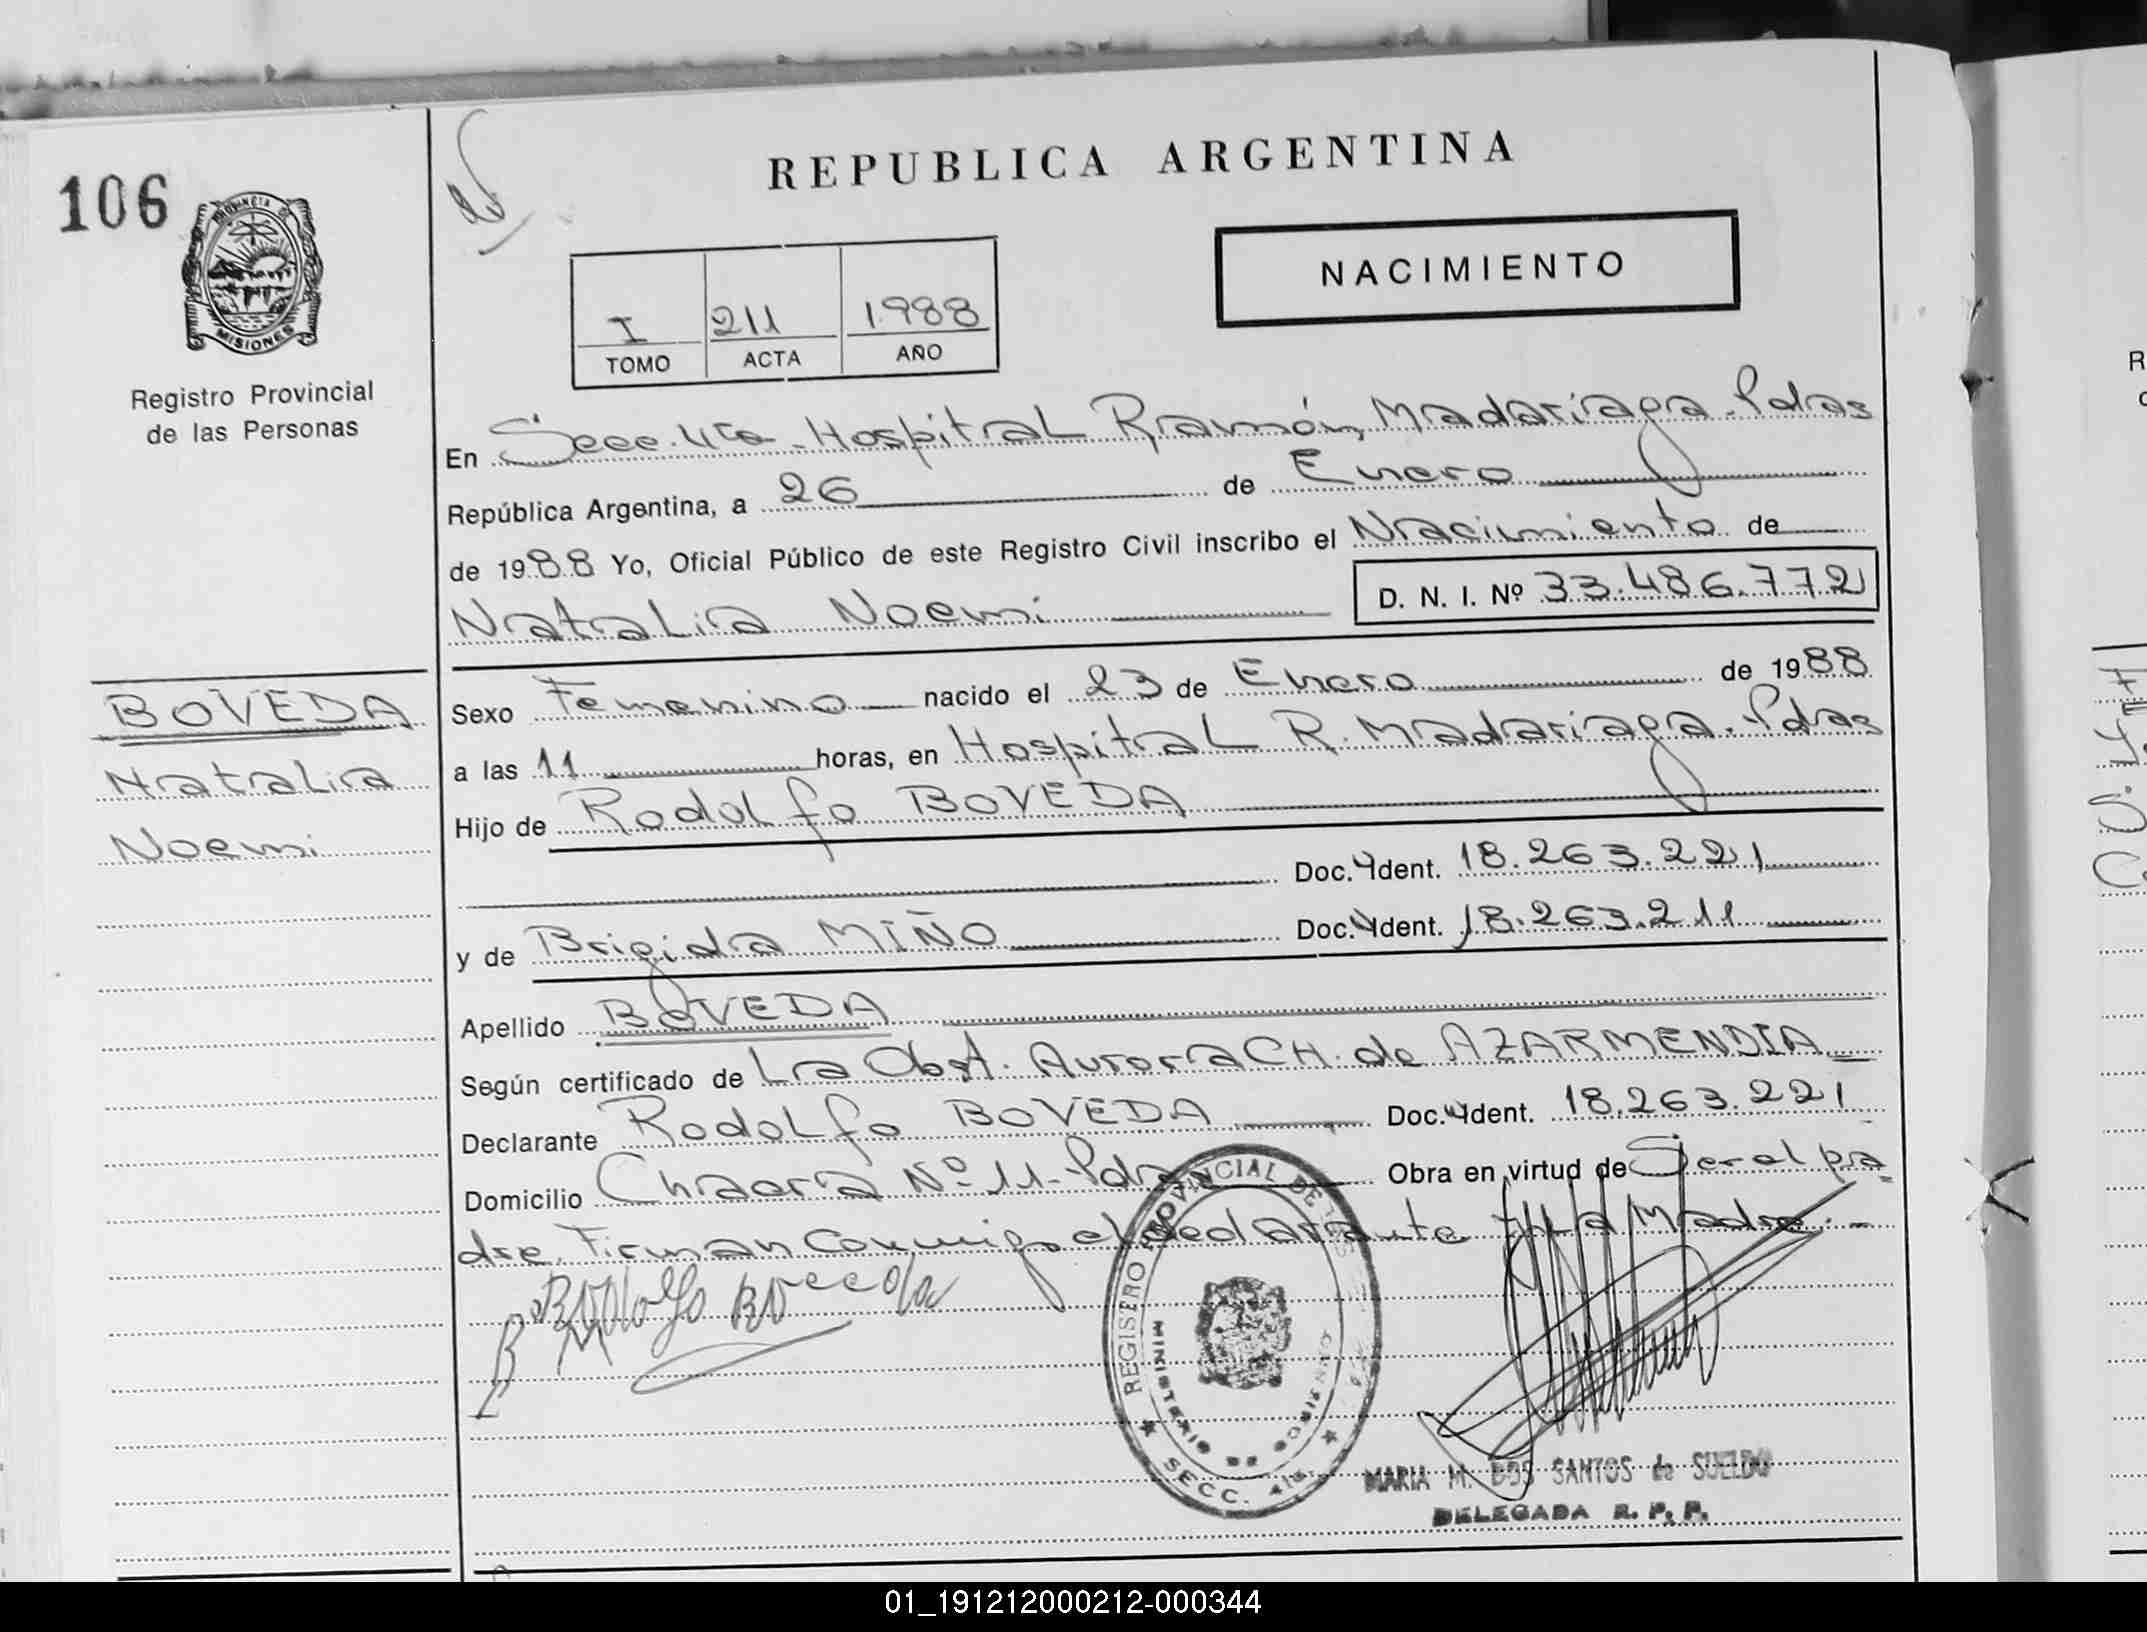 106
PROVINCIA DE
MISIONES
Registro Provincial
de las Personas
REPUBLICA ARGENTINA
NACIMIENTO
I 211 1.988
TOMO ACTA AÑO
En Secc. 4ta. Hospital Ramón Madariaga. Pdas
República Argentina, a 26 de Enero
de 1988 Yo, Oficial Público de este Registro Civil inscribo el Nacimiento de
Natalia Noemi D. N. I. Nº 33.486.772
BOVEDA
Natalia
Noemi
Sexo Femenino nacido el 23 de Enero de 1988
a las 11 horas, en Hospital R. Madariaga. Pdas
Hijo de Rodolfo BOVEDA
Doc. Ident. 18.263.221
y de Brigida MIÑO Doc. Ident. 18.263.211
Apellido BOVEDA
Según certificado de La Obst. Aurora CH. de AZARMENDIA
Declarante Rodolfo BOVEDA Doc. Ident. 18.263.221
Domicilio Chacra Nº 11- Pdas Obra en virtud de Ser el pa
dre. Firman Conmigo el declarante y La Madre.-
Rodolfo Boveda
B M
REGISTRO PROVINCIAL DE LAS
MINISTERIO DE GOBIERNO
SECC. 4ta
MARIA M. DOS SANTOS de SUELDO
DELEGADA R. P. P.
01_191212000212-000344